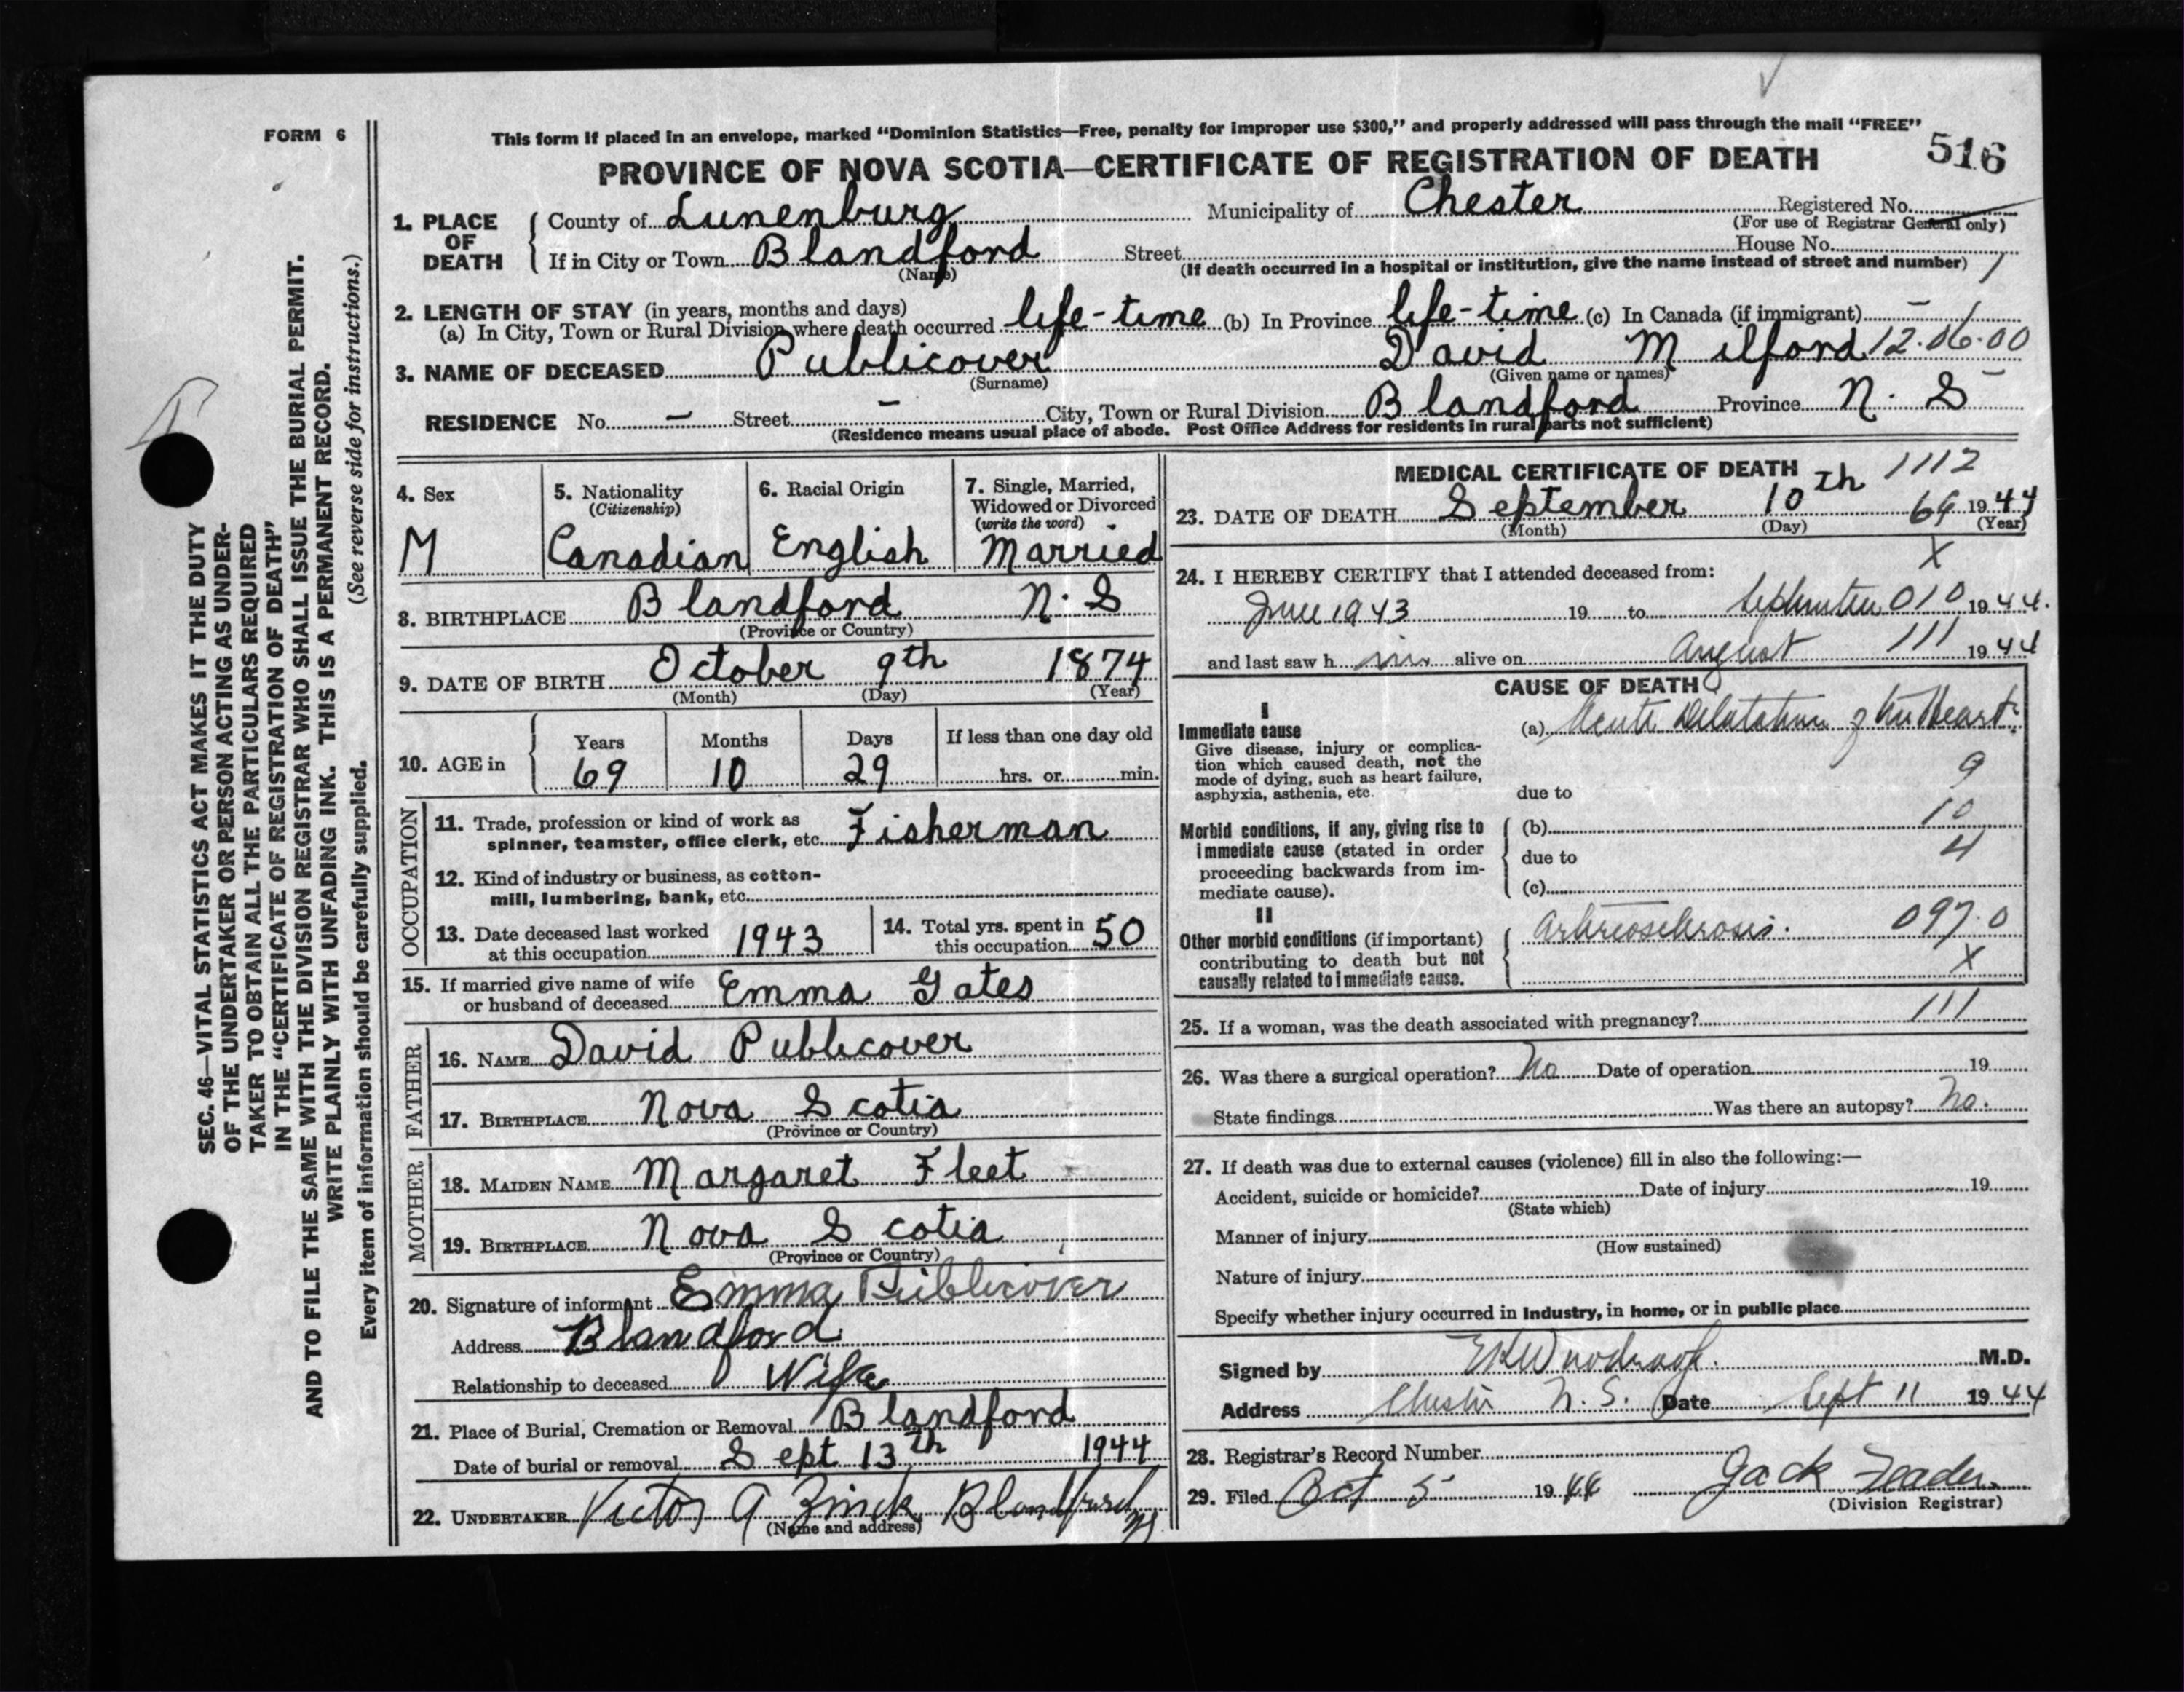 FORM 6
This form if placed in an envelope, marked “Dominion Statistics—Free, penalty for improper use $300,” and properly addressed will pass through the mail “FREE”
PROVINCE OF NOVA SCOTIA—CERTIFICATE OF REGISTRATION OF DEATH 516
1. PLACE OF DEATH County of Lunenburg Municipality of Chester Registered No.
(For use of Registrar General only)
If in City or Town Blandford Street House No.
(Name) (If death occurred in a hospital or institution, give the name instead of street and number) 1
2. LENGTH OF STAY (in years, months and days)
(a) In City, Town or Rural Division where death occurred life-time (b) In Province life-time (c) In Canada (if immigrant) –
3. NAME OF DECEASED Publicover David Milford 12.06.00
(Surname) (Given name or names)
RESIDENCE No. – Street – City, Town or Rural Division Blandford Province N. S
(Residence means usual place of abode. Post Office Address for residents in rural parts not sufficient)
4. Sex M
5. Nationality (Citizenship) Canadian
6. Racial Origin English
7. Single, Married, Widowed or Divorced (write the word) Married
8. BIRTHPLACE Blandford N. S
(Province or Country)
9. DATE OF BIRTH October 9th 1874
(Month) (Day) (Year)
10. AGE in Years 69 Months 10 Days 29 If less than one day old hrs. or min.
OCCUPATION
11. Trade, profession or kind of work as spinner, teamster, office clerk, etc. Fisherman
12. Kind of industry or business, as cotton-mill, lumbering, bank, etc.
13. Date deceased last worked at this occupation 1943
14. Total yrs. spent in this occupation 50
15. If married give name of wife or husband of deceased Emma Gates
FATHER
16. NAME David Publicover
17. BIRTHPLACE Nova Scotia
(Province or Country)
MOTHER
18. MAIDEN NAME Margaret Fleet
19. BIRTHPLACE Nova Scotia
(Province or Country)
20. Signature of informant Emma Publicover
Address Blandford
Relationship to deceased Wife
21. Place of Burial, Cremation or Removal Blandford
Date of burial or removal Sept 13th 1944
22. UNDERTAKER Victor A Zinck Blandford NS
(Name and address)
MEDICAL CERTIFICATE OF DEATH 1112
23. DATE OF DEATH September 10th 69 1944
(Month) (Day) (Year)
X
24. I HEREBY CERTIFY that I attended deceased from:
June 1943 19 to September 010 1944.
and last saw h im alive on August 111 1944
CAUSE OF DEATH
I
Immediate cause
Give disease, injury or complication which caused death, not the mode of dying, such as heart failure, asphyxia, asthenia, etc.
(a) Acute Dilatation of the Heart.
9
due to
Morbid conditions, if any, giving rise to immediate cause (stated in order proceeding backwards from immediate cause).
(b) 10
due to 4
(c)
II
Other morbid conditions (if important) contributing to death but not causally related to immediate cause.
Arteriosclerosis. 097.0
X
111
25. If a woman, was the death associated with pregnancy?
26. Was there a surgical operation? No Date of operation 19
State findings Was there an autopsy? No.
27. If death was due to external causes (violence) fill in also the following:—
Accident, suicide or homicide? Date of injury 19
(State which)
Manner of injury
(How sustained)
Nature of injury
Specify whether injury occurred in Industry, in home, or in public place
Signed by M.D.
Address Chester N. S. Date Sept 11 1944
28. Registrar's Record Number
29. Filed Oct 5 1944 Jack
(Division Registrar)
SEC. 46—VITAL STATISTICS ACT MAKES IT THE DUTY
OF THE UNDERTAKER OR PERSON ACTING AS UNDER-
TAKER TO OBTAIN ALL THE PARTICULARS REQUIRED
IN THE “CERTIFICATE OF REGISTRATION OF DEATH”
AND TO FILE THE SAME WITH THE DIVISION REGISTRAR WHO SHALL ISSUE THE BURIAL PERMIT.
WRITE PLAINLY WITH UNFADING INK. THIS IS A PERMANENT RECORD.
Every item of information should be carefully supplied. (See reverse side for instructions.)